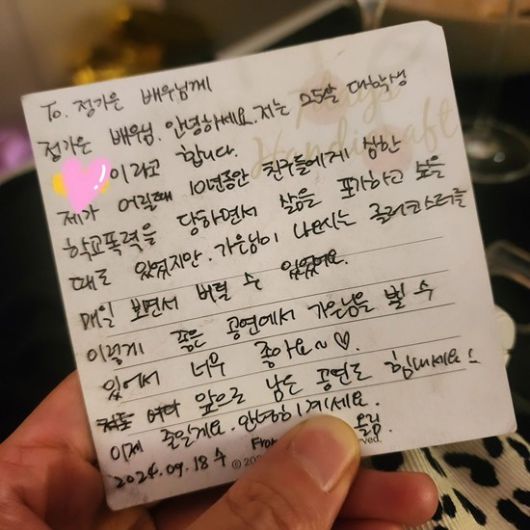 To. 정가은 배우님께
정가은 배우님. 안녕하세요. 저는 25살 대학생
이라고 합니다.
제가 어릴때 10년동안 친구들에게 심한
학교폭력을 당하면서 삶을 포기하고 싶을
때도 있었지만. 가은님이 나오시는 롤러코스터를
매일 보면서 버틸 수 있었어요.
이렇게 좋은 공연에서 가은님을 뵐 수
있어서 너무 좋아요~♡.
앞으로 남은 공연도 힘내세요
이제 줄일게요. 안녕히계세요.
2024.09.18 수 From 올림
Days
Handicraft